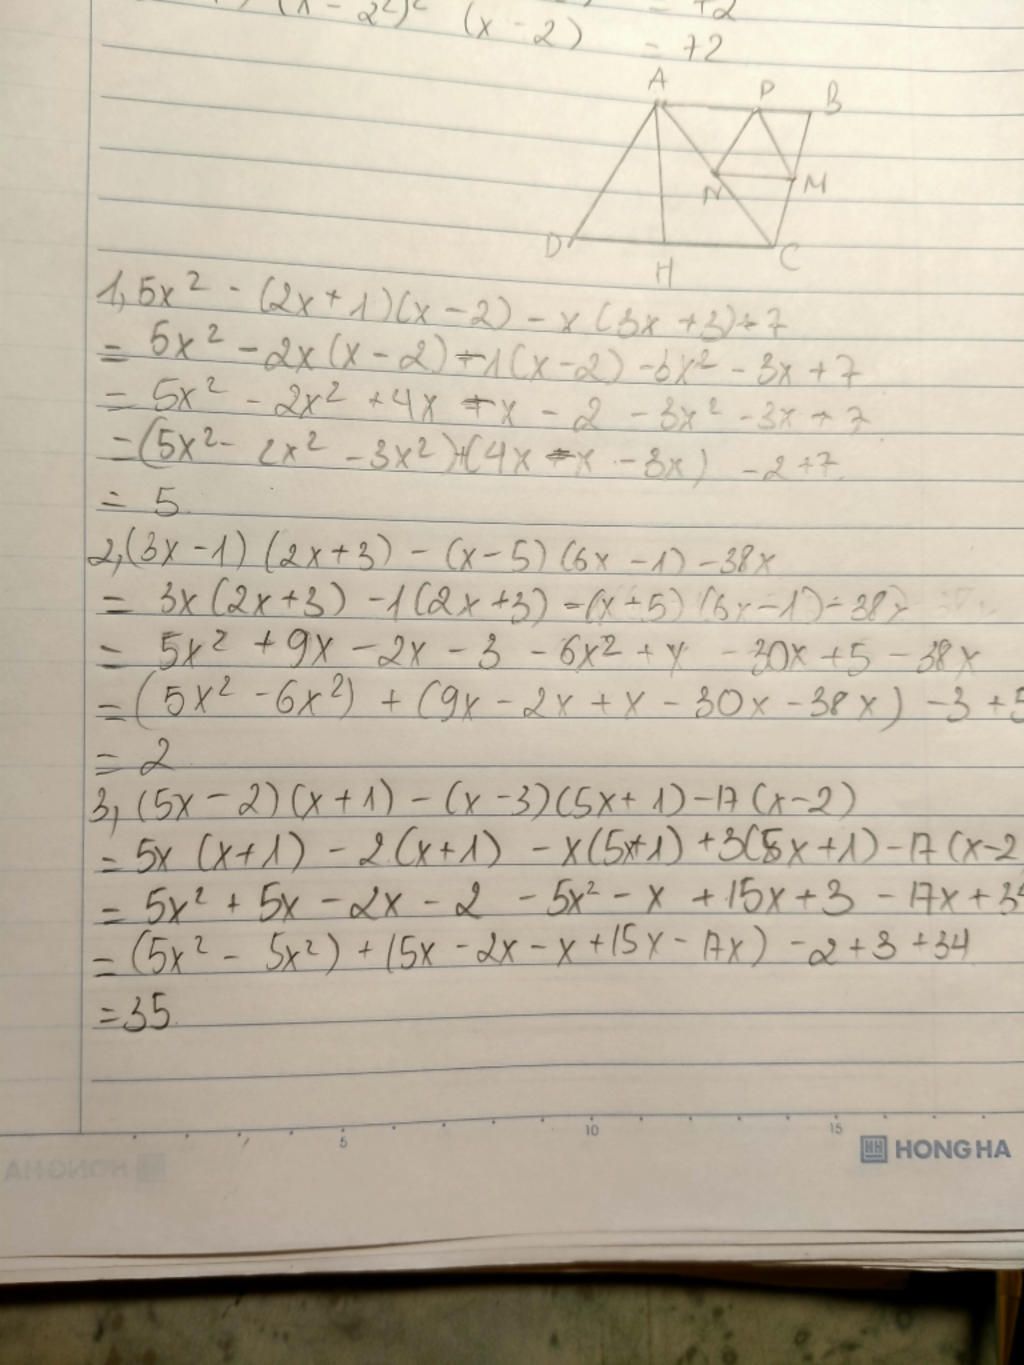 (x-2)   = 72
A P B
N M
D H C
1, 5x² - (2x+1)(x-2) - x(3x+3)+7
= 5x² - 2x(x-2) - 1(x-2) - 3x² - 3x + 7
= 5x² - 2x² + 4x - x - 2 - 3x² - 3x + 7
= (5x² - 2x² - 3x²)+(4x - x - 3x) - 2 + 7
= 5
2, (3x-1)(2x+3) - (x-5)(6x-1) - 38x
= 3x(2x+3) - 1(2x+3) - (x+5)(6x-1) - 38x
= 5x² + 9x - 2x - 3 - 6x² + x - 30x + 5 - 38x
= (5x² - 6x²) + (9x - 2x + x - 30x - 38x) - 3 + 5
= 2
3, (5x-2)(x+1) - (x-3)(5x+1) - 17(x-2)
= 5x(x+1) - 2(x+1) - x(5x+1) + 3(5x+1) - 17(x-2
= 5x² + 5x - 2x - 2 - 5x² - x + 15x + 3 - 17x + 34
= (5x² - 5x²) + (5x - 2x - x + 15x - 17x) - 2 + 3 + 34
= 35
5 10 15
HONG HA